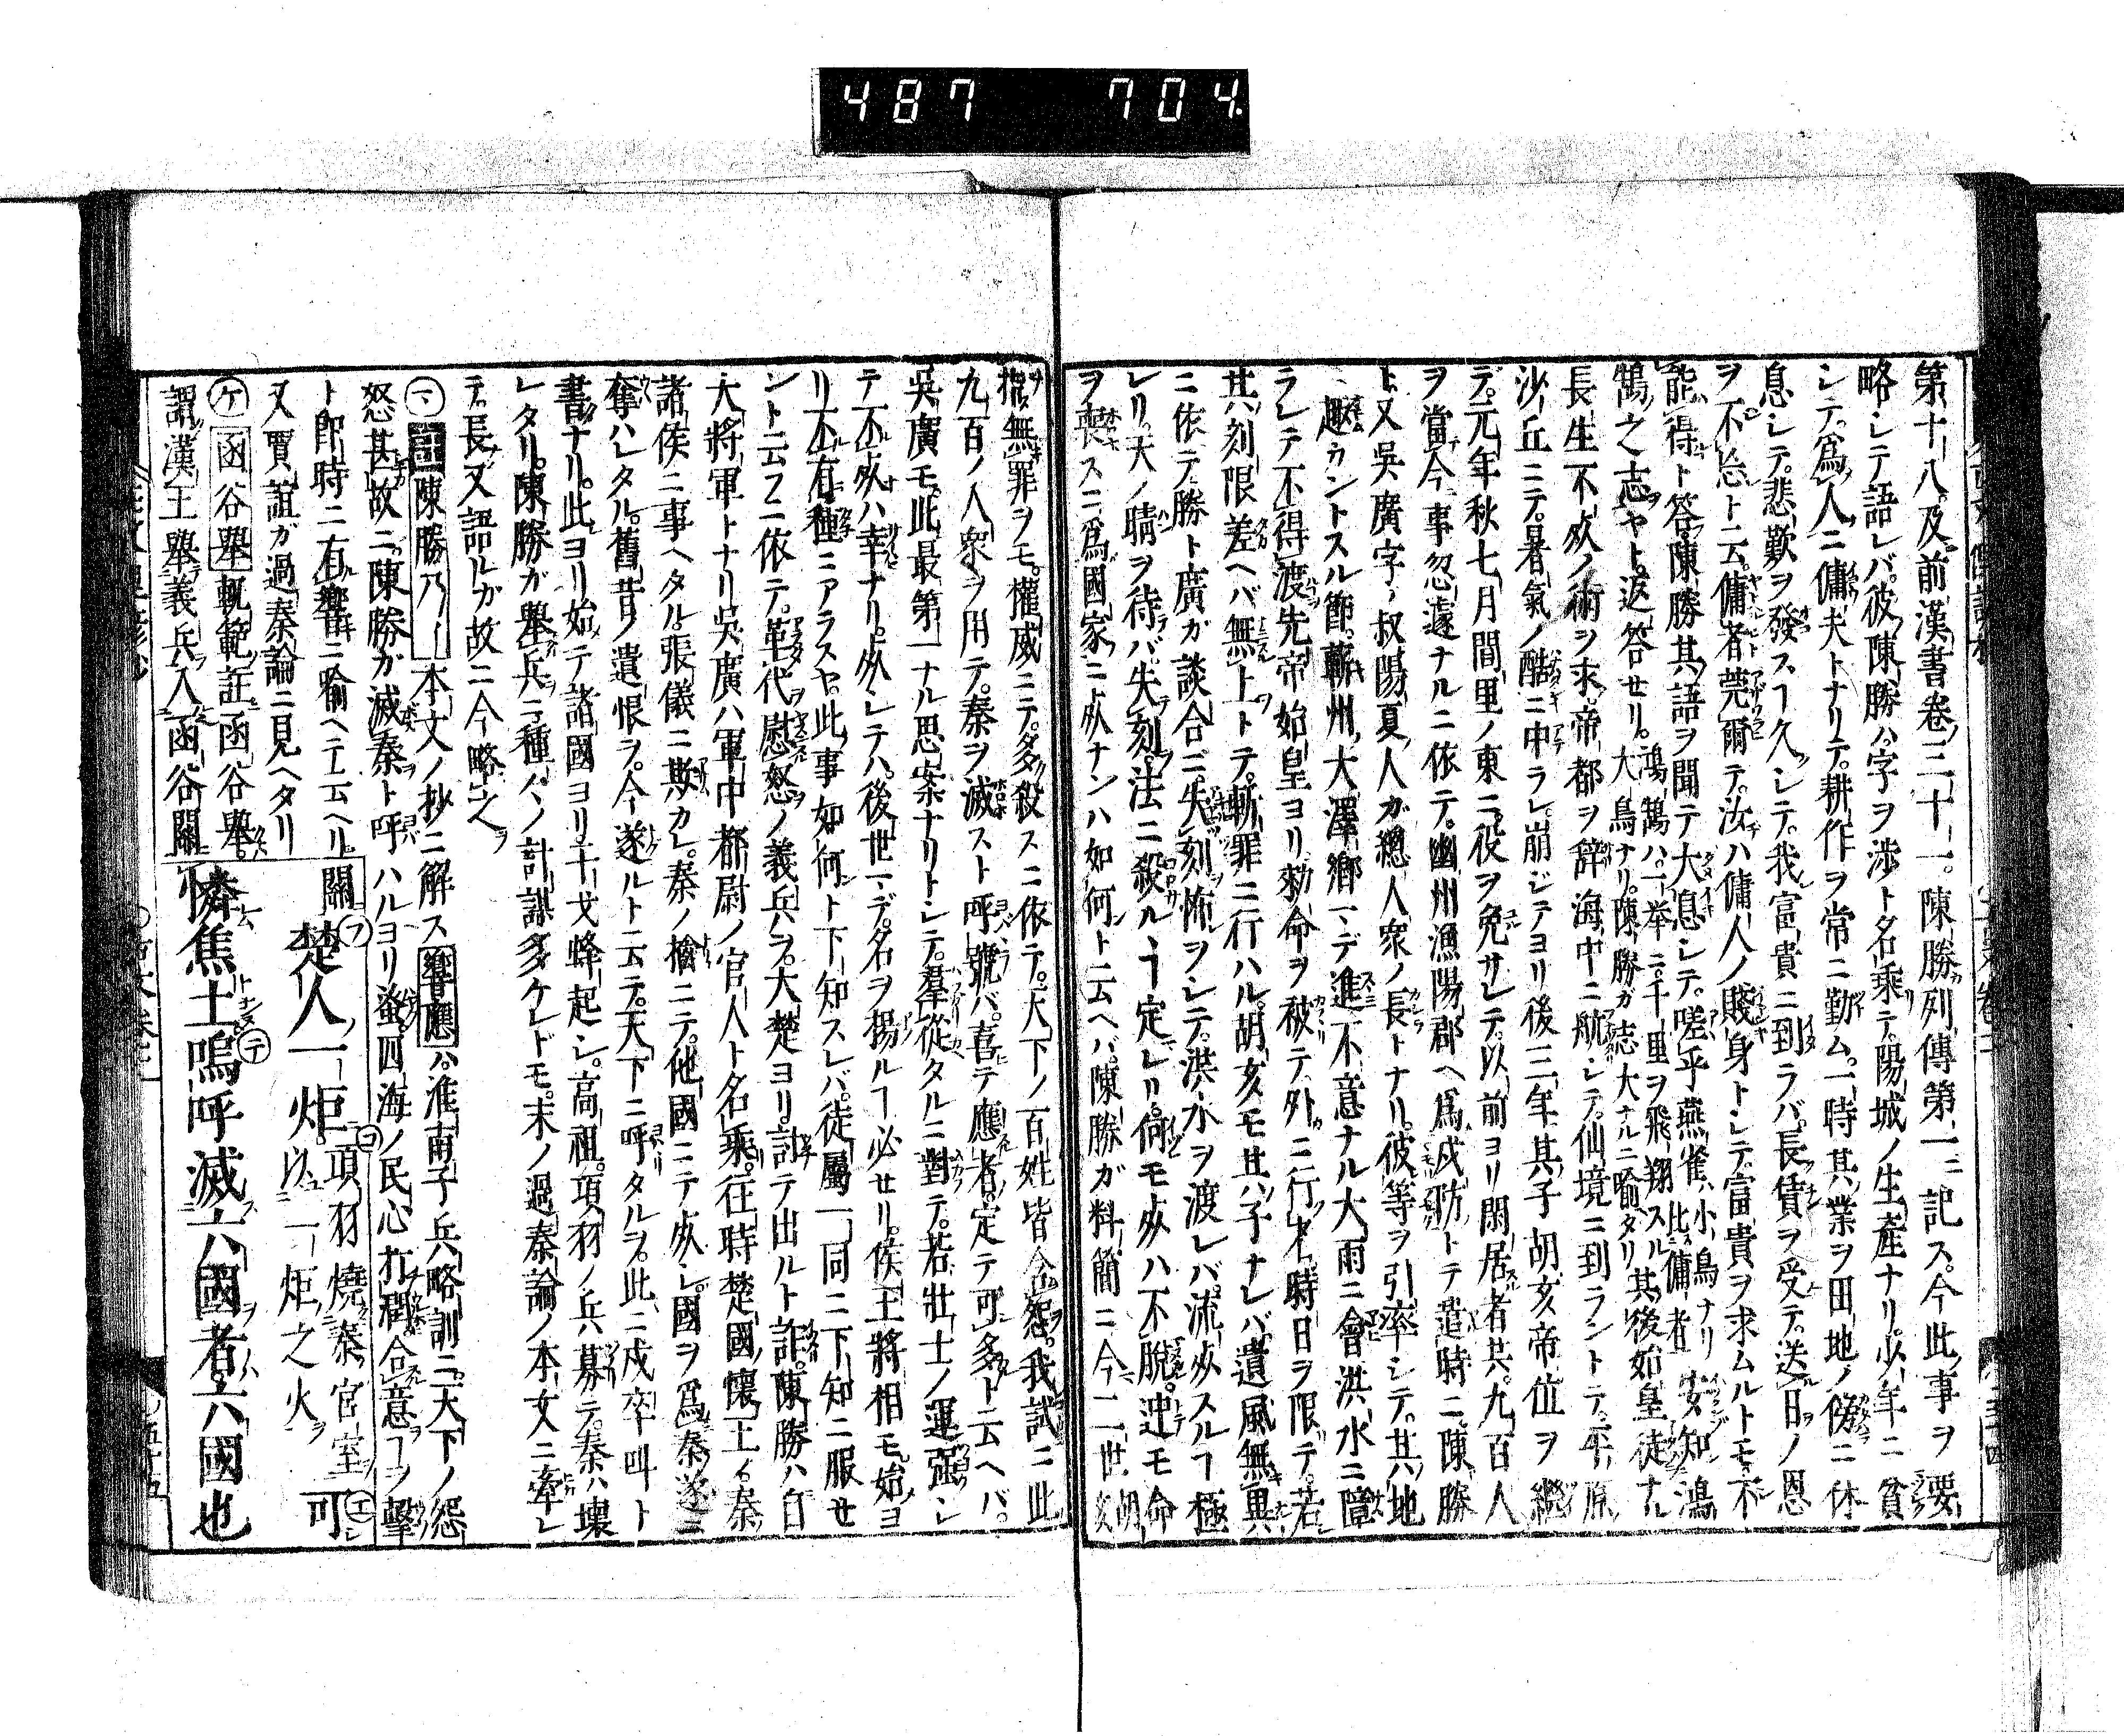 487 704.
第十八。及前漢書卷三十一。陳勝列傳第一ニ記ス。今此事ヲ要
略シテ語レバ。彼陳勝ハ字ヲ渉ト名乘テ。陽城ノ生產ナリ。少年ニ貧
シテ。爲人ニ傭夫トナリテ。耕作ヲ常ニ勤ム。一時其業ヲ田地ノ傍ニ休
息シテ。悲歎ヲ發スヿ久シテ。我富貴ニ到ラバ。長債ヲ受テ。送日ノ恩
ヲ不忘ト云。傭者莞爾テ。汝ハ傭人ノ賤身トシテ。富貴ヲ求ムルトモ。不
能得ト答。陳勝其語ヲ聞テ大息シテ。嗟乎燕雀ハ小鳥ナリ比傭者安知鴻
鵠之志ヤト。返答セリ。鴻鵠ハ一挙ニ千里ヲ飛翔スル大鳥ナリ。陳勝ガ志大ナルニ喩タリ其後始皇徒ナル
長生不死ノ術ヲ求。帝都ヲ辭海中ニ航シテ。仙境ニ到ラントテ。平原
沙丘ニテ。暑氣ノ酷ニ中ラレ。崩ジテヨリ後三年。其子胡亥帝位ヲ繼
デ。元年秋七月閭里ノ東ニ。役ヲ免サレテ。以前ヨリ閑居者共。九百人
ヲ當。今事忽遽ナルニ依テ。幽州漁陽郡ヘ爲戍防トテ遣時ニ。陳勝
ト又吳廣字ハ叔陽夏人ガ總人衆ノ長トナリ。彼等ヲ引率シテ。其地
ニ趣カントスル節。蘄州大澤鄉マデ進不意ナル大雨ニ會洪水ニ障
ラレテ不得渡先帝始皇ヨリ勅命ヲ被テ。外ニ行ク時日ヲ限テ。若
其刻限差ヘバ無上トテ。斬罪ニ行ハル。胡亥モ其子ナレバ遺風無異
ニ依テ。勝ト廣ガ談合ニ。失刻怖ヲシテ。洪水ヲ渡レバ。流死スルヿ極
レリ。天ノ晴ヲ待バ。失刻。法ニ殺ルヽヿ定レリ。何モ死ハ不脫。迚モ命
ヲ喪スニ。爲國家ニ死ナンハ如何ト云ヘバ。陳勝ガ料簡ニ今二世胡亥
指無罪ヲモ。權威ニテ。多殺スニ依テ。天下ノ百姓皆含怨。我試ニ此
九百ノ人衆ヲ用テ。秦ヲ滅スト呼號バ。喜テ應者。定テ可多ト云ヘバ。
吳廣モ。此最第一ナル思案ナリトシテ。羣從タルニ對テ。若壯士ノ運强シ
テ不死ハ幸ナリ。死シテハ。後世マデ。名ヲ揚ルヿ必セリ。侯王將相モ。始ヨ
リ不有種ニアラスヤ。此事如何ト下知スレバ。徒屬一同ニ下知ニ服セ
ント云フニ依テ。革代慰怒ノ義兵ヲ。大楚ヨリ。計テ出ルト詐。陳勝ハ自
大將軍トナリ吳廣ハ軍中都尉ノ官人ト名乘。往時楚國懷王ハ。秦
諸侯ニ事ヘタル。張儀ニ欺カレ。秦ノ擒ニテ。他國ニテ死シ。國ヲ爲秦遂ニ
奪ハレタル。舊昔ノ遺恨ヲ。今遂ルト云テ。天下ニ呼タルヲ。此ニ戍卒叫ト
書ナリ。此ヨリ始テ諸國ヨリ干戈蜂起シ。高祖。項羽ノ兵ハ募テ。秦ハ壞
レタリ。陳勝ガ舉兵ニ種々ノ計謀多ケレドモ。末ノ過秦論ノ本文ニ牽レ
テ。長又語ルガ故ニ今略之
㋮ 陳勝乃ノ 本文ノ抄ニ解ス 響應ハ。淮南子兵略訓ニ。天下ノ怨
怒甚故ニ。陳勝ガ滅秦ト呼ハルヨリ蚤。四海ノ民心打潤合意ヿヲ擊
ト卽時ニ有響ニ喩ヘテ云ヘリ
又賈誼ガ過秦論ニ見ヘタリ
㋘ 函谷舉 軌範註函谷舉。
謂漢王舉義兵入函谷關
關 ㋫楚人一炬㋙ 項羽燒秦宮室
以一炬之火 ㋓可
憐焦土㋢嗚呼滅六國者六國也